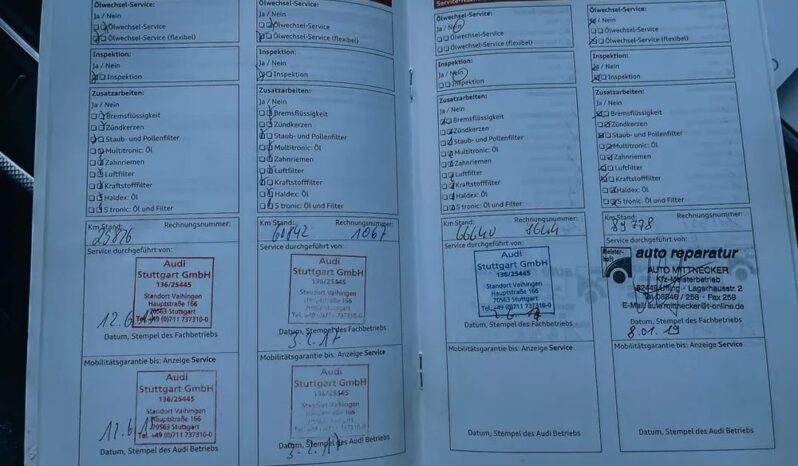 Ölwechsel-Service:
Ja / Nein
Ölwechsel-Service
Ölwechsel-Service (flexibel)
Inspektion:
Ja / Nein
Inspektion
Zusatzarbeiten:
Ja / Nein
Bremsflüssigkeit
Zündkerzen
Staub- und Pollenfilter
Multitronic: Öl
Zahnriemen
Luftfilter
Kraftstofffilter
Haldex: Öl
S tronic: Öl und Filter
Km Stand: Rechnungsnummer:
Service durchgeführt von:
Audi
Stuttgart GmbH
136/25445
Standort Vaihingen
Hauptstraße 166
70563 Stuttgart
Tel. +49 (0)711 737310-0
Datum, Stempel des Fachbetriebs
Mobilitätsgarantie bis: Anzeige Service
Audi
Stuttgart GmbH
136/25445
Standort Vaihingen
Hauptstraße 166
70563 Stuttgart
Tel. +49 (0)711 737310-0
Datum, Stempel des Audi Betriebs
Ölwechsel-Service:
Ja / Nein
Ölwechsel-Service
Ölwechsel-Service (flexibel)
Inspektion:
Ja / Nein
Inspektion
Zusatzarbeiten:
Ja / Nein
Bremsflüssigkeit
Zündkerzen
Staub- und Pollenfilter
Multitronic: Öl
Zahnriemen
Luftfilter
Kraftstofffilter
Haldex: Öl
S tronic: Öl und Filter
Km Stand: Rechnungsnummer:
60842 1067
Service durchgeführt von:
Audi
Stuttgart GmbH
136/25445
Standort Vaihingen
Hauptstraße 166
70563 Stuttgart
Tel. +49 (0)711 737310-0
Datum, Stempel des Fachbetriebs
Mobilitätsgarantie bis: Anzeige Service
Audi
Stuttgart GmbH
136/25445
Standort Vaihingen
Hauptstraße 166
70563 Stuttgart
Tel. +49 (0)711 737310-0
Datum, Stempel des Audi Betriebs
Ölwechsel-Service:
Ja / Nein
Ölwechsel-Service
Ölwechsel-Service (flexibel)
Inspektion:
Ja / Nein
Inspektion
Zusatzarbeiten:
Ja / Nein
Bremsflüssigkeit
Zündkerzen
Staub- und Pollenfilter
Multitronic: Öl
Zahnriemen
Luftfilter
Kraftstofffilter
Haldex: Öl
S tronic: Öl und Filter
Km Stand: Rechnungsnummer:
66640
Service durchgeführt von:
Audi
Stuttgart GmbH
136/25445
Standort Vaihingen
Hauptstraße 166
70563 Stuttgart
Tel. +49 (0)711 737310-0
Datum, Stempel des Fachbetriebs
Mobilitätsgarantie bis: Anzeige Service
Datum, Stempel des Audi Betriebs
Ölwechsel-Service:
Ja / Nein
Ölwechsel-Service
Ölwechsel-Service (flexibel)
Inspektion:
Ja / Nein
Inspektion
Zusatzarbeiten:
Ja / Nein
Bremsflüssigkeit
Zündkerzen
Staub- und Pollenfilter
Multitronic: Öl
Zahnriemen
Luftfilter
Kraftstofffilter
Haldex: Öl
S tronic: Öl und Filter
Km Stand: Rechnungsnummer:
89778
Service durchgeführt von:
Meisterhaft
auto reparatur
AUTO MITTNECKER
Kfz-Meisterbetrieb
82449 Uffing - Lagerhausstr. 2
Tel. 08846 / 258 - Fax 259
E-Mail: auto.mittnecker@t-online.de
8.01.19
Datum, Stempel des Fachbetriebs
Mobilitätsgarantie bis: Anzeige Service
Datum, Stempel des Audi Betriebs